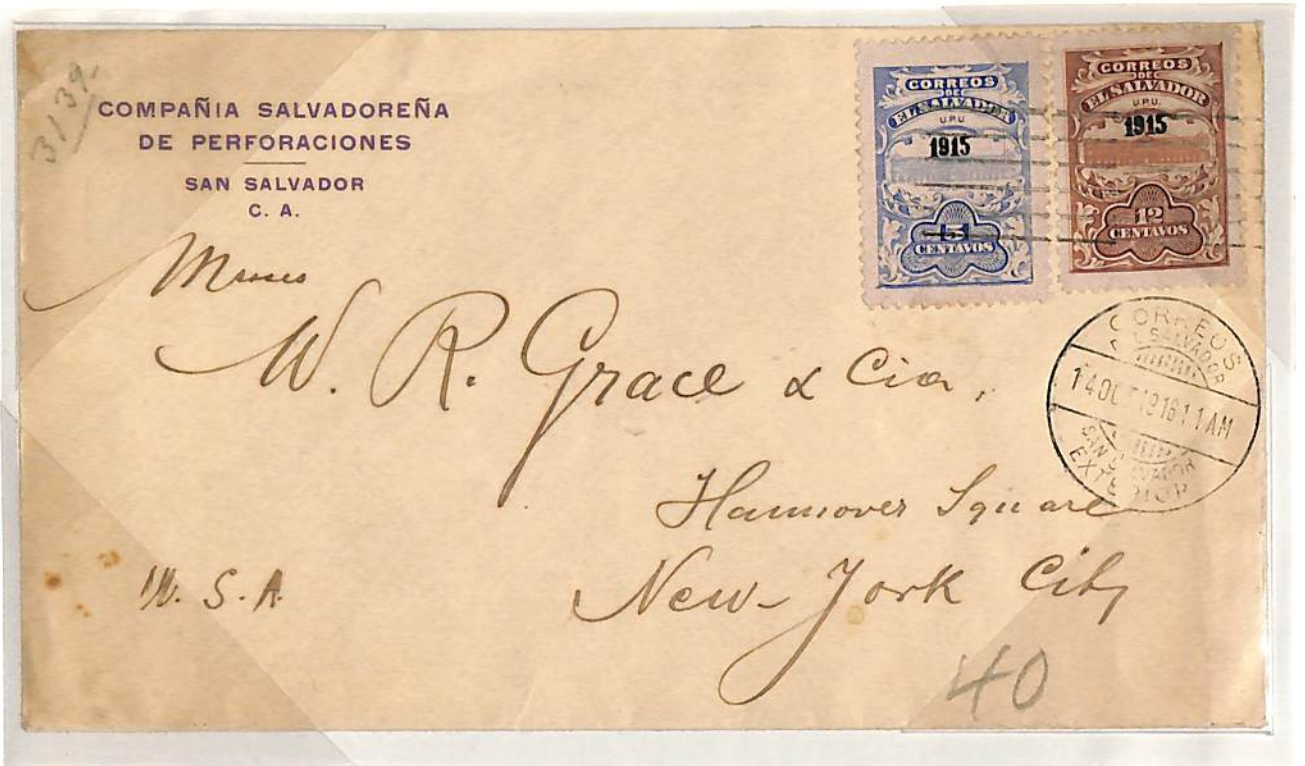 3139-
COMPAÑIA SALVADOREÑA
DE PERFORACIONES
SAN SALVADOR
C. A.
CORREOS
DE
EL SALVADOR
U.P.U.
1915
5
CENTAVOS
CORREOS
DE
EL SALVADOR
U.P.U.
1915
12
CENTAVOS
CORREOS
EL SALVADOR
14 OCT 1918 11 AM
SAN SALVADOR
EXTERIOR
Messrs
W. R. Grace & Cia,
Hannover Square
New-York City
U. S. A.
40